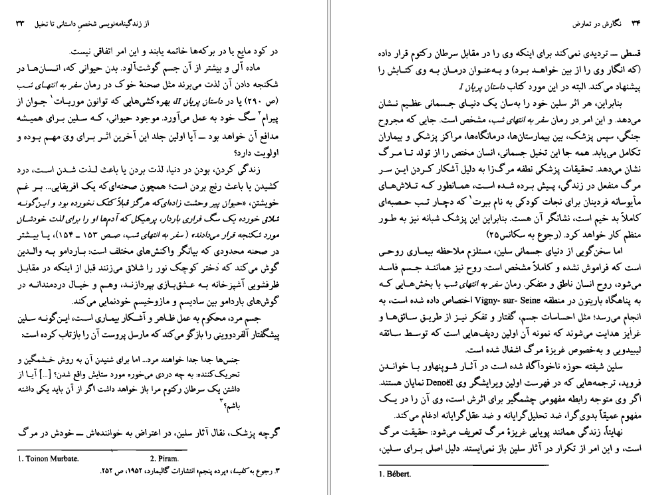 ۳۴ نگارش در تعارض
قسطی ـ تردیدی نمی‌کند برای اینکه وی را در مقابل سرطان رکتوم قرار داده
(که انگار وی را از بین خواهد برد) و به‌عنوان درمان به وی کتابش را
پیشنهاد می‌کند. البته در این مورد کتاب داستان پریان I.
بنابراین، هر اثر سلین خود را به‌سان یک دنیای جسمانی عظیم نشان
می‌دهد. و این امر در رمان سفر به انتهای شب، مشخص است. جایی که مجروح
جنگی، سپس پزشک، بین بیمارستان‌ها، درمانگاه‌ها، مراکز پزشکی و بیماران
تکامل می‌یابد. همه جا این تخیل جسمانی، انسان مختص را از تولد تا مرگ
نشان می‌دهد. تحقیقات پزشکی نطفه مرگ‌زا به دلیل آشکار کردن این سر
مرگ منفعل در زندگی، پیش برده شده است، همانطور که تلاش‌های
مأیوسانه فردینان برای نجات کودکی به نام ببرت¹ که دچار تب حصبه‌ای
کاملاً بد خیم است، نشانگر آن هست. بنابراین این پزشک شبانه نیز به طور
منظم کار خواهد کرد. (رجوع به سکانس۲۵)
اما سخن‌گویی از دنیای جسمانی سلین، مستلزم ملاحظه بیماری روحی
است که فراموش نشده و کاملاً مشخص است: روح نیز همانند جسم فاسد
می‌شود، روح انسان ناطق و متفکر. رمان سفر به انتهای شب با بخش‌هایی که
به پناهگاه باریتون در منطقه Vigny- sur- Seine اختصاص داده شده است، به
انجام می‌رسد؛ مثل احساسات جسم، گفتار و تفکر نیز از طریق سائق‌ها و
غرایز هدایت می‌شوند که نمونه آن اولین ردیف‌هایی است که توسط سائقه
لیبیدویی و به‌خصوص غریزهٔ مرگ اشغال شده است.
سلین شیفته حوزه ناخودآگاه شده است در آثار شوپنهاور با خواندن
فروید، ترجمه‌هایی که در فهرست اولین ویرایشگر وی Denoël نمایان هستند.
اگر وی متوجه رابطه مفهومی چشمگیر برای اثرش است، وی آن را در یک
مفهوم عمیقاً بدوی‌گرا، ضد تحلیل‌گرایانه و ضد عقل‌گرایانه ادغام می‌کند.
نهایتاً، زندگی همانند پویایی غریزهٔ مرگ تعریف می‌شود: حقیقت مرگ
است، و این امر از تکرار در آثار سلین باز نمی‌ایستد. دلیل اصلی برای سلین،
1. Bébert.
از زندگینامه‌نویسی شخصیِ داستانی تا تخیل ۳۳
در کود مایع یا در برکه‌ها خاتمه یابند و این امر اتفاقی نیست.
ماده آلی و بیشتر از آن جسم گوشت‌آلود. بدن حیوانی که، انسان‌ها در
شکنجه دادن آن لذت می‌برند مثل صحنهٔ خوک در رمان سفر به انتهای شب
(ص ۲۹۰) یا در داستان پریان II، بهره‌کشی‌هایی که توانون موربات¹ جوان از
پیرام² سگ خود به عمل می‌آورد. موجود حیوانی، که سلین برای همیشه
مدافع آن خواهد بود ـ آیا اولین جلد این آخرین اثر برای وی مهم بوده و
اولویت دارد؟
زندگی کردن، بودن در دنیا، لذت بردن یا باعث لذت شدن است، درد
کشیدن یا باعث رنج بردن است؛ همچون صحنه‌ای که یک افریقایی... بر غم
خویشتن، «حیوان پیر وحشت زده‌ای که هرگز قبلاً کتک نخورده بود و این‌گونه
شلاق خورده یک سگ فراری باردار، پرهیکل که آدم‌ها او را برای لذت خودشان
مورد شکنجه قرار می‌دادند» (سفر به انتهای شب، صص ۱۵۳ ـ ۱۵۴)، یا بیشتر
در صحنه محدودی که بیانگر واکنش‌های مختلف است: باردامو به والدین
گوش می‌کند که دختر کوچک نور را شلاق می‌زنند قبل از اینکه در مقابل
ظرفشویی آشپزخانه به عشق‌بازی بپردازند، وهم و خیال دردمندانه در
گوش‌های باردامو بین سادیسم و مازوخیسم خودنمایی می‌کند.
جسم مرد، محکوم به عمل ظاهر و آشکار بیماری است، این‌گونه سلین
پیشگفتار آلفرددوینی را بازگو می‌کند که مارسل پروست آن را بازتاب کرده است:
جنس‌ها جدا جدا خواهند مرد... اما برای شنیدن آن به روش خشمگین و
تحریک‌کننده: به چه دردی می‌خوره مورد ستایش واقع شدن؟ [...] آیا از
داشتن یک سرطان رکتوم مرا باز خواهد داشت اگر از آن باید یکی داشته
باشم؟³
گرچه پزشک، نقال آثار سلین، در اعتراض به خواننده‌اش ـ خودش در مرگ
1. Toinon Murbate. 2. Piram.
۳. رجوع به کلیسا، «پرده پنجم» انتشارات گالیمارد، ۱۹۵۲، ص ۲۵۲.